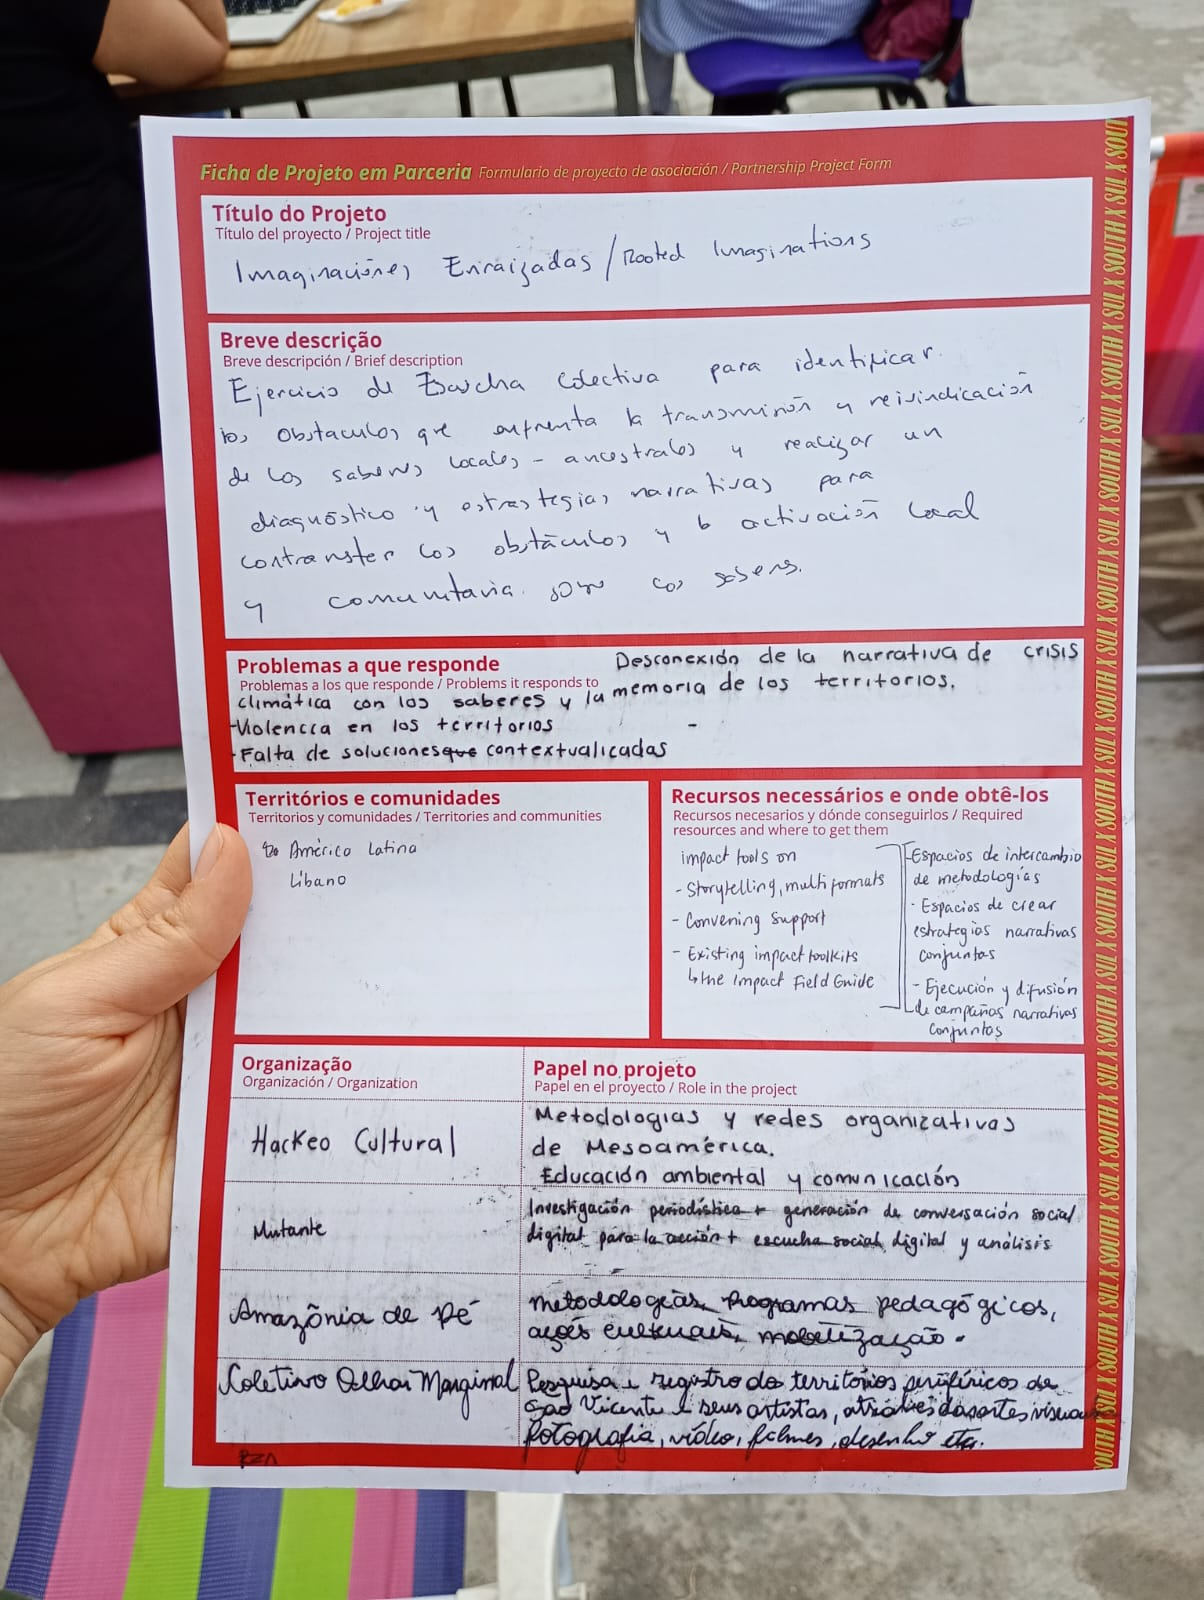 Ficha de Projeto em Parceria Formulario de proyecto de asociación / Partnership Project Form
Título do Projeto
Título del proyecto / Project title
Imaginaciones Enraizadas / Rooted Imaginations
Breve descrição
Breve descripción / Brief description
Ejercicio de Escucha Colectiva para identificar
los obstaculos que enfrenta la transmisión y reivindicación
de los saberes locales - ancestrales y realizar un
diagnóstico y estrategias narrativas para
contrarrestar los obstáculos y la activación local
y comunitaria los saberes.
Problemas a que responde
Problemas a los que responde / Problems it responds to
Desconexión de la narrativa de crisis
climática con los saberes y la memoria de los territorios.
-Violencia en los territorios -
-Falta de soluciones que contextualicadas
Territórios e comunidades
Territorios y comunidades / Territories and communities
América Latina
Líbano
Recursos necessários e onde obtê-los
Recursos necesarios y dónde conseguirlos / Required
resources and where to get them
impact tools on
- Storytelling, multi formats
- Convening support
- Existing impact toolkits
↳ the Impact Field Guide
- Espacios de intercambio
de metodologías
- Espacios de crear
estrategias narrativas
conjuntas
- Ejecución y difusión
de campañas narrativas
conjuntas
Organização
Organización / Organization
Papel no projeto
Papel en el proyecto / Role in the project
Hackeo Cultural
Metodologias y redes organizativas
de Mesoamérica.
Educación ambiental y comunicación
Mutante
Investigación periodística + generación de conversación social
digital para la acción + escucha social digital y análisis
Amazônia de Pé
metodologias, programas pedagógicos,
ações culturais, mobilização.
Coletivo Olhar Marginal
Pesquisa e registro do territórios periféricos de
São Vicente e seus artistas, através das artes visuais
fotografia, vídeo, filmes, desenho etc.
SUL X SOUTH X SUL X SOUTH X SUL X SOUTH X SUL X SOUTH X SUL X SOUTH X SUL X SOUTH